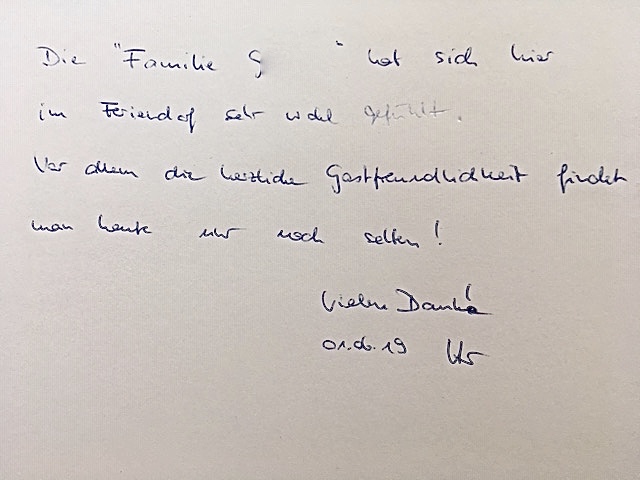 Die "Familie G " hat sich hier
im Feriendorf sehr wohl gefühlt.
Vor allem die herzliche Gastfreundlichkeit findet
man heute nur noch selten!
Vielen Dank!
01.06.19